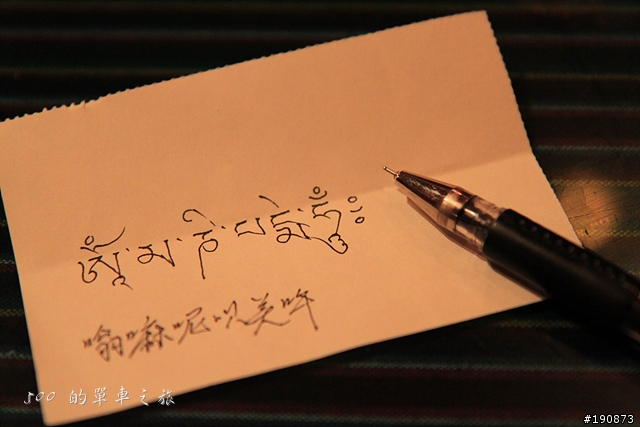 ཨོཾ་མ་ཎི་པདྨེ་ཧཱུྃ༔
嗡嘛呢叭美吽
500 的單車之旅
#190873